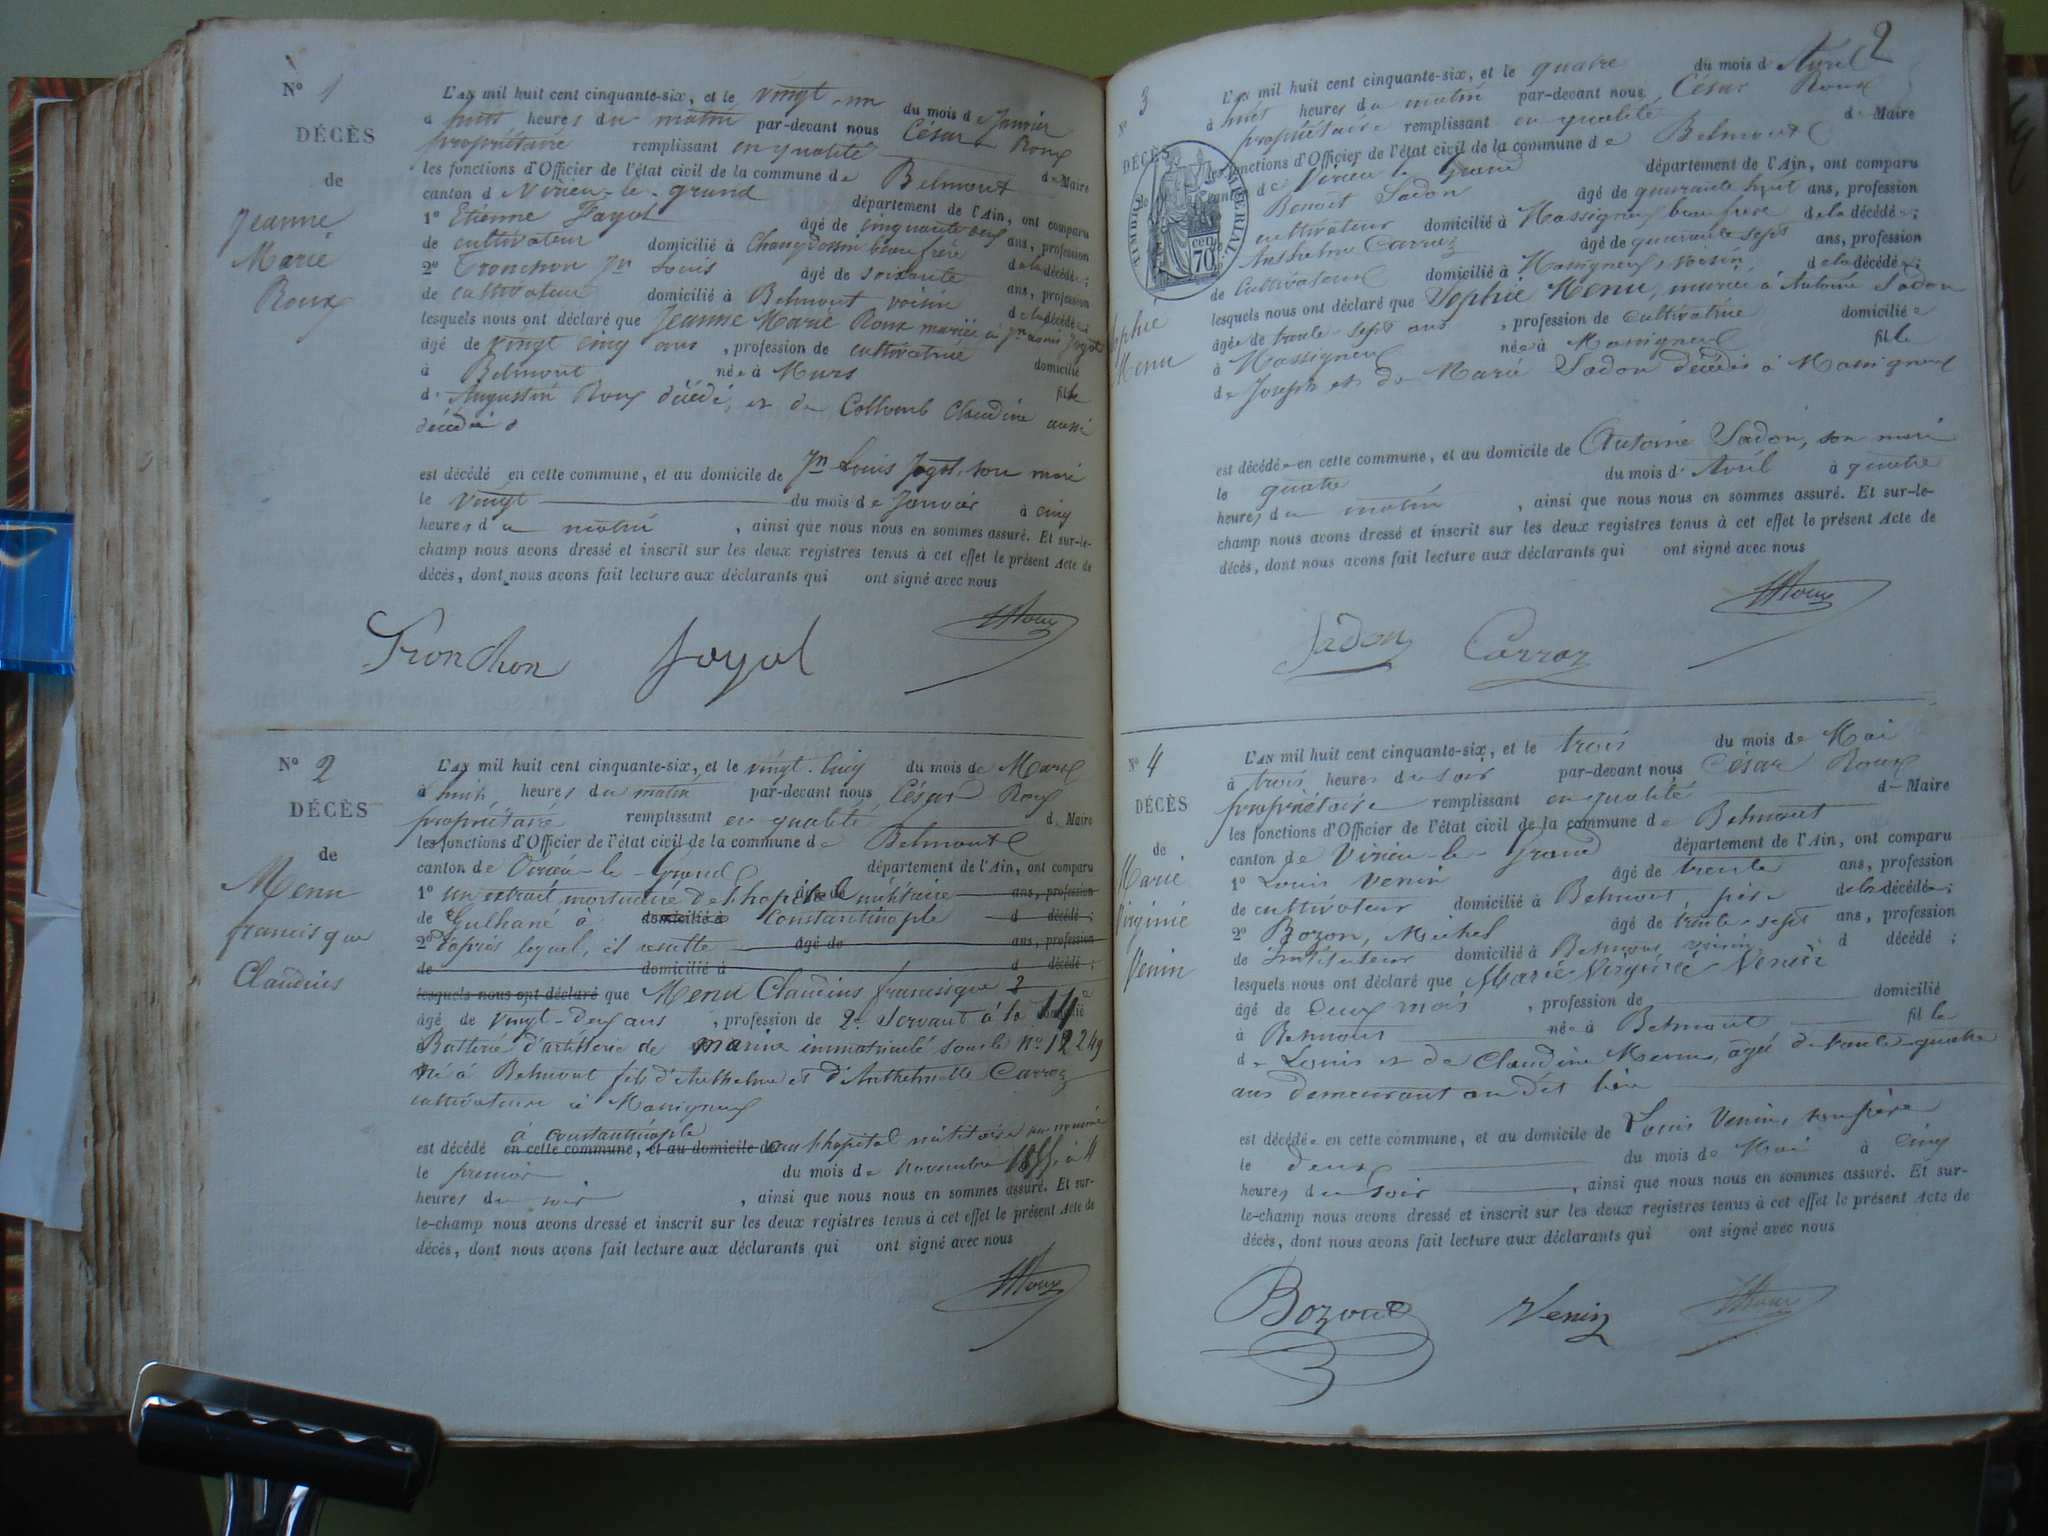 N° 1
DÉCÈS
de
Jeanne
Marie
Roux
L'AN mil huit cent cinquante-six, et le vingt-un du mois de Janvier
à huit heures du matin par-devant nous César Roux
propriétaire remplissant en qualité de Maire
les fonctions d'Officier de l'état civil de la commune de Belmont
canton d Virieu-le-grand département de l'Ain, ont comparu
1° Etienne âgé de cinquante ans, profession
de cultivateur domicilié à beau frère de la décédée;
2° Tronchon Jn Louis âgé de soixante ans, profession
de cultivateur domicilié à Belmont voisin de la décédée;
lesquels nous ont déclaré que Jeanne Marie Roux mariée à Jn Louis
âgé de vingt cinq ans, profession de cultivatrice domicilié
à Belmont née à Murs fille
d' Augustin Roux décédé, et de Collomb Claudine aussi
décédée
est décédé en cette commune, et au domicile de Jn Louis son mari
le vingt du mois de Janvier à cinq
heures du matin, ainsi que nous nous en sommes assuré. Et sur-le-
champ nous avons dressé et inscrit sur les deux registres tenus à cet effet le présent Acte de
décès, dont nous avons fait lecture aux déclarants qui ont signé avec nous
Tronchon Roux
N° 2
DÉCÈS
de
Menu
francisque
Claudius
L'AN mil huit cent cinquante-six, et le vingt-cinq du mois de Mars
à huit heures du matin par-devant nous César Roux
propriétaire remplissant en qualité de Maire
les fonctions d'Officier de l'état civil de la commune de Belmont
canton de Virieu-le-Grand département de l'Ain, ont comparu
1° un extrait mortuaire de l'hopital militaire ans, profession
de Gulhané à domicilié à Constantinople d décédé;
2° d'après lequel, il résulte âgé de ans, profession
de domicilié à d décédé;
lesquels nous ont déclaré que Menu Claudius francisque
âgé de vingt-deux ans, profession de 2e Servant à la 14e
Batterie d'artillerie de marine immatriculé sous le n° 12249
né à Belmont fils d'Anthelme et d'Anthelmette Carroz
cultivateurs à Massigneux
à constantinople
est décédé en cette commune, et au domicile de au l'hopital militaire
le premier du mois de novembre 1855 à 4
heures du soir, ainsi que nous nous en sommes assuré. Et sur-
le-champ nous avons dressé et inscrit sur les deux registres tenus à cet effet le présent Acte de
décès, dont nous avons fait lecture aux déclarants qui ont signé avec nous
Roux
2
N° 3
DÉCÈS
TIMBRE IMPÉRIAL
70 cen
Sophie
Menu
L'AN mil huit cent cinquante-six, et le quatre du mois d Avril
à huit heures du matin par-devant nous César Roux
propriétaire remplissant en qualité de Maire
les fonctions d'Officier de l'état civil de la commune de Belmont
de Virieu le Grand département de l'Ain, ont comparu
Benoit Jadon âgé de quarante huit ans, profession
cultivateur domicilié à Massigneux beau frère de la décédée;
Anthelme Carroz âgé de quarante sept ans, profession
de Cultivateur domicilié à Massigneux, voisin de la décédée;
lesquels nous ont déclaré que Sophie Menu, mariée à Antoine Jadon
âgée de trente-sept ans, profession de cultivatrice domiciliée
à Massigneux née à Massigneux fille
de Joseph et de Marie Jadon décédés à Massigneux
est décédée en cette commune, et au domicile de Antoine Jadon, son mari
le quatre du mois d' Avril à quatre
heures du matin, ainsi que nous nous en sommes assuré. Et sur-le-
champ nous avons dressé et inscrit sur les deux registres tenus à cet effet le présent Acte de
décès, dont nous avons fait lecture aux déclarants qui ont signé avec nous
Jadon Carroz Roux
N° 4
DÉCÈS
de
Marie
Virginie
Venin
L'AN mil huit cent cinquante-six, et le trois du mois de Mai
à trois heures du soir par-devant nous César Roux
propriétaire remplissant en qualité de Maire
les fonctions d'Officier de l'état civil de la commune de Belmont
canton de Virieu-le-Grand département de l'Ain, ont comparu
1° Louis Venin âgé de trente ans, profession
de cultivateur domicilié à Belmont, père de la décédée;
2° Bozon, Michel âgé de trente-sept ans, profession
de instituteur domicilié à Belmont, voisin d décédé;
lesquels nous ont déclaré que Marie Virginie Venin
âgé de deux mois, profession de domicilié
à Belmont née à Belmont fille
de Louis et de Claudine Menu, agée de trente-quatre
ans demeurant au dit lieu
est décédée en cette commune, et au domicile de Louis Venin, son père
le deux du mois de Mai à cinq
heures du soir, ainsi que nous nous en sommes assuré. Et sur-
le-champ nous avons dressé et inscrit sur les deux registres tenus à cet effet le présent Acte de
décès, dont nous avons fait lecture aux déclarants qui ont signé avec nous
Venin Roux